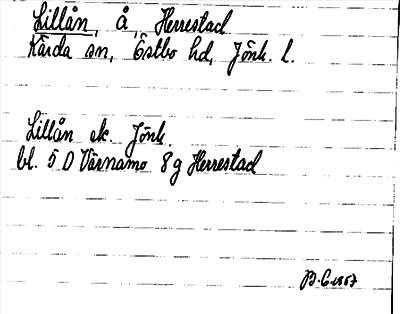 Lillån, å, Herrestad
Kärda sn, Östbo hd, Jönk. l.
Lillån ek. Jönk.
bl. 5 D Värnamo 8 g Herrestad